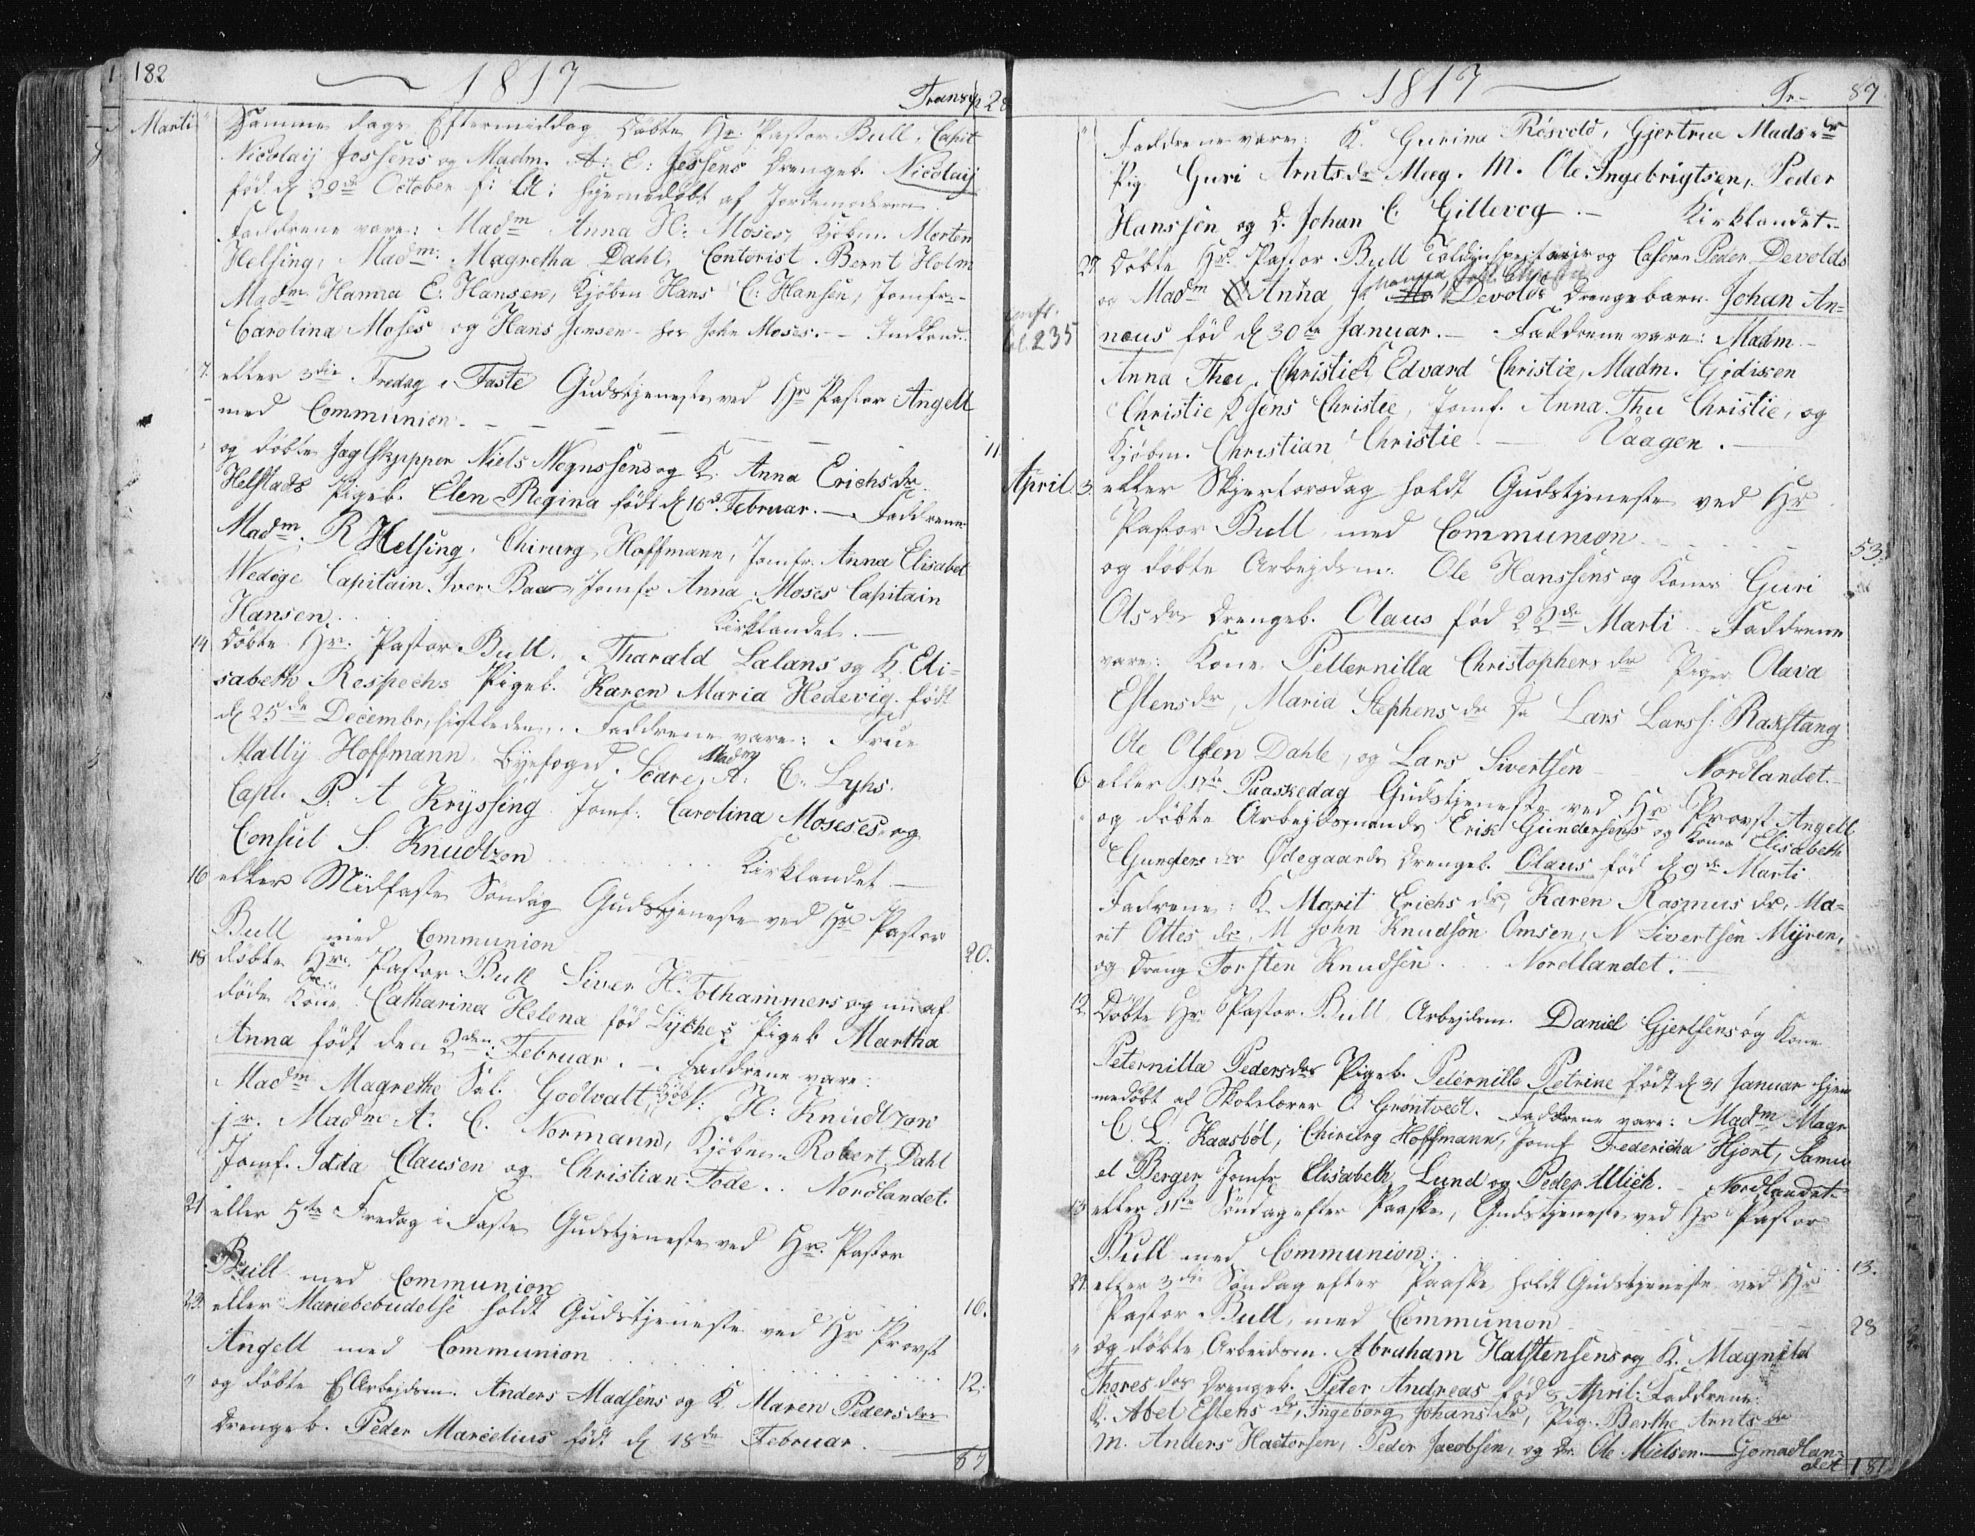 182
1817
Transp 28
Marti " Samme Dags Eftermiddag Döbte Hr. Pastor Bull. Capit
Nicolaij Jessens og Madm. A: E: Jessens Drengeb. Nicolaij
föd d 29de October f: A: hjemmedöbt af Jordemoderen
Faddrene vare: Madm Anna H: Moses, Kjöbm. Morten
Helsing, Madm: Magretha Dahl, Contorist Bernt Holm
Madm Hanna E: Hansen, Kjöbm Hans C: Hansen, Jomfr:
Carolina Moses og Hans Jensen hos John Moses. - Indland.
7. eller 3die Fredag i Faste Gudstjeneste ved Hr Pastor Angell
med Communion 11
og döbte Jagtskipper Niels Mognssens og K. Anna Erichsdr
Helstads Pigeb. Elen Regina födt d 16d Februar. - Faddrene
Madm. R Helsing. Chirurg Hoffmann, Jomfr. Anna Elisabet
Wedege Capitain Iver Baas Jomfr Anna Moses Capitain
Hansen. Kirklandet. -
14 döbte Hr: Pastor Bull. Tharald Lalans og K. Eli-
sabeth Respechs Pigeb. Karen Maria Hedevig. födt
d 25de Decembr, sistleden. Faddrene vare: Frue
Mally Hoffmann. Byefoged Scare, Madm A: C. Lyhs.
Capt. P. A Kryssing Jomf. Carolina Moseses og
Consul S. Knudtzon Kirklandet -
16 eller Midfaste Söndag Gudstjeneste ved Hr Pastor
Bull med Communion 20.
18 döbte Hr. Pastor Bull Siver H. Tothammers og nu af
döde Kone Catharina Helena föd Lythes Pigeb Martha
Anna födt den 2den Februar. - Faddrene vare:
Madm Magrethe Sal. Godtvalt, Kjöbm: H: Knudtzon
jr. Madme A. C. Normann, Kjöbm. Robert Dahl
Jomf. Idda Clausen og Christian Tode. . Nordlandet.
21 eller 5te Fredag i Faste Gudstjeneste ved Hr. Pastor
Bull med Communion 16.
25. eller Mariebebudelse holdt Gudstjeneste ved Hr Provst
Angell med Communion 12.
" og döbte Arbejdsm. Anders Madsens og K Maren Pedersdrs
Drengeb. Peder Marcelius födt d 18de Februar.
87
1817
Tr- 87
" Faddrene vare: K. Gurina Rösvold, Gjertrue Madsdr
Pig Guri Arntsdr Meeg. M. Ole Ingebrigtsen, Peder
Hanssen og D. Johan C. Gillevog. - Kirklandet. -
27 döbte Hr. Pastor Bull Toldinspecteur og Casserer Peder Devolds
og Madm Anna J. Devolds Drengebarn Johan An-
conf. 235 næus föd d 30te Januar. - Faddrene vare: Madm
Anna Thea Christie K Edvard Christie, Madm. Gidisken
Christie K Jens Christie, Jomf. Anna Thea Christie, og
Kjöbm. Christian Christie - Vaagen. -
April 3. eller Skjertorsdag holdt Gudstjeneste ved Hr
Pastor Bull med Communion 53.
og döbte Arbejdsm. Ole Hanssens og Kones Guri
Olsdrs Drengeb. Olaus föd 22de Marti - Faddrene
vare: Kone Petternilla Christophersdr Piger Olava
Estensdr, Maria Stephensdr Dr Lars Larss: Rakstang
Ole Olsen Dahle, og Lars Sivertsen - Nordlandet. -
6 eller 1ste Paaskedag Gudstjeneste ved Hr Provst Angell
og döbte Arbejdsmands Erik Gundersens og Kones Elisabeth
Gundersdr Ödegaards Drengeb. Olaus föd d 9de Marti
Fadrene: K. Marit Erichsdr, Karen Rasmusdr, Ma-
rit Ottesdr, M John Knudsön Omsen, N Sivertsen Myren,
og Dreng Torsten Knudsen. . Nordlandet. -
12 döbte Hr Pastor Bull Arbejdsm. Daniel Gjertsens og Kone
Peternilla Pedersdrs Pigeb. Peternille Petrine födt d 31 Januar hjem
medöbt af Skolelærer O. Gröntvedt. Faddrene vare: Madm Magr
C. L. Kaasböl, Chirurg Hoffmann, Jomf Fredericha Hjort, Samu
el Berger Jomfr Elisabeth Lund og Peder Ulich. - Nordlandet
13 eller 1ste Söndag efter Paaske, Gudstjeneste ved Hr Pastor
Bull med Communion. 13.
27. eller 3die Söndag efter Paaske holdt Gudstjeneste ved Hr
Pastor Bull, med Communion 28
" og döbte Arbeidsm. Abraham Halstensens og K. Magnild
Thoresdrs Drengeb. Peter Andreas föd 3 April. Faddrene
K. Abel Estensdr, Ingeborg Johansdr, Pig. Berthe Arntsdr
M. Anders Hactorsen, Peder Jacobsen, og Dr. Ole Nielsen. Gomadlan-
det 181